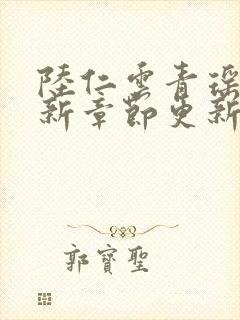 陸仁雲青瑤
新章節更新
郭寶聖